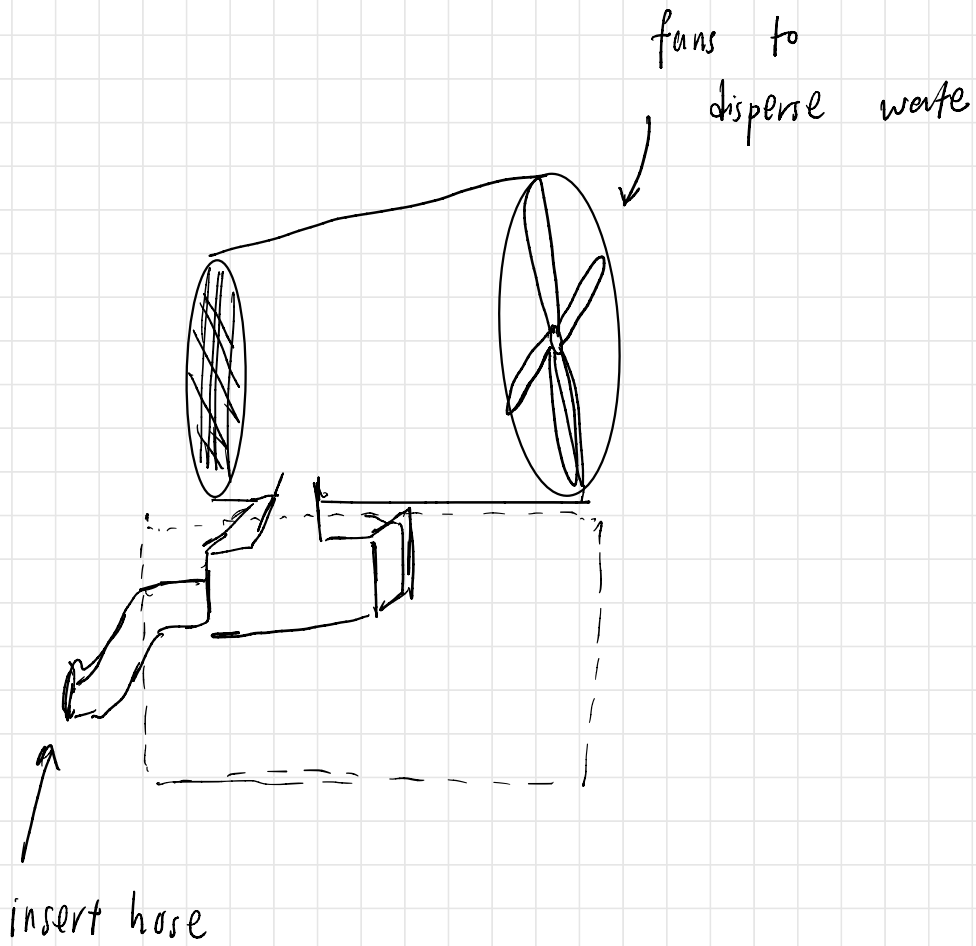 fans to
disperse wate
insert hose